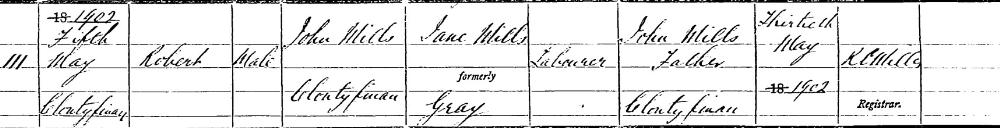 18 1902
Fifth
May
Clontyfinan
111
Robert
Male
John Mills
Clontyfinan
Jane Mills
formerly
Gray
Labourer
John Mills
Father
Clontyfinan
Thirtieth
May
18 1902
Registrar.